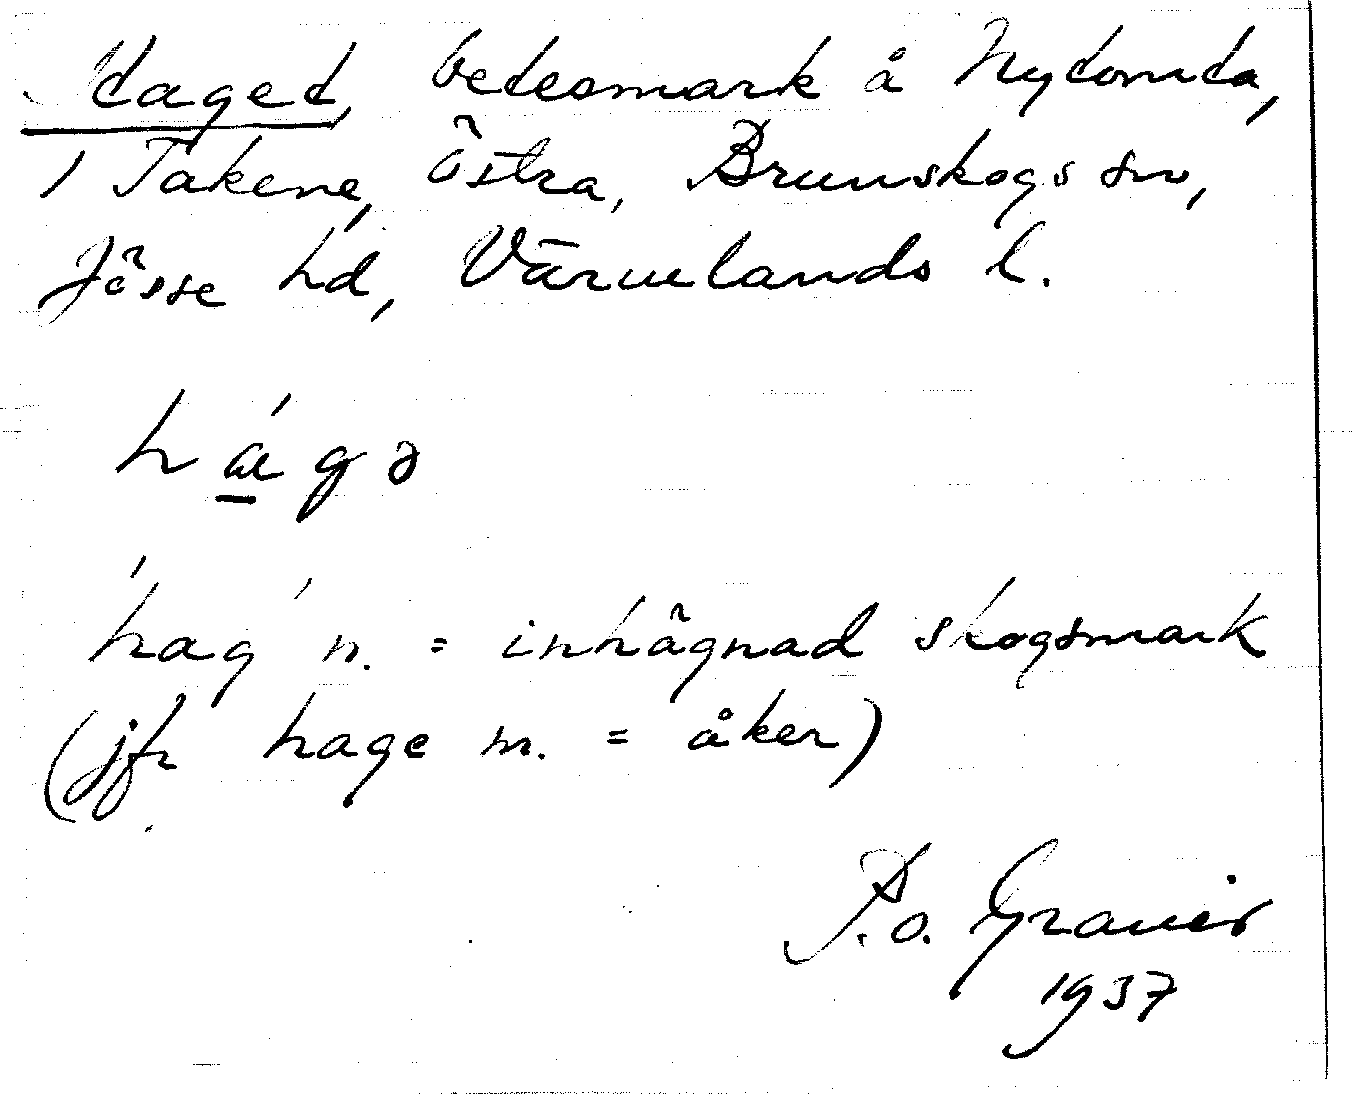 Haget, betesmark å Nytomta,
1 Takene, Östra, Brunskogs sn,
Jösse hd, Värmlands l.
hágə
hag n. = inhägnad skogsmark
(jfr hage m. = åker)
1937